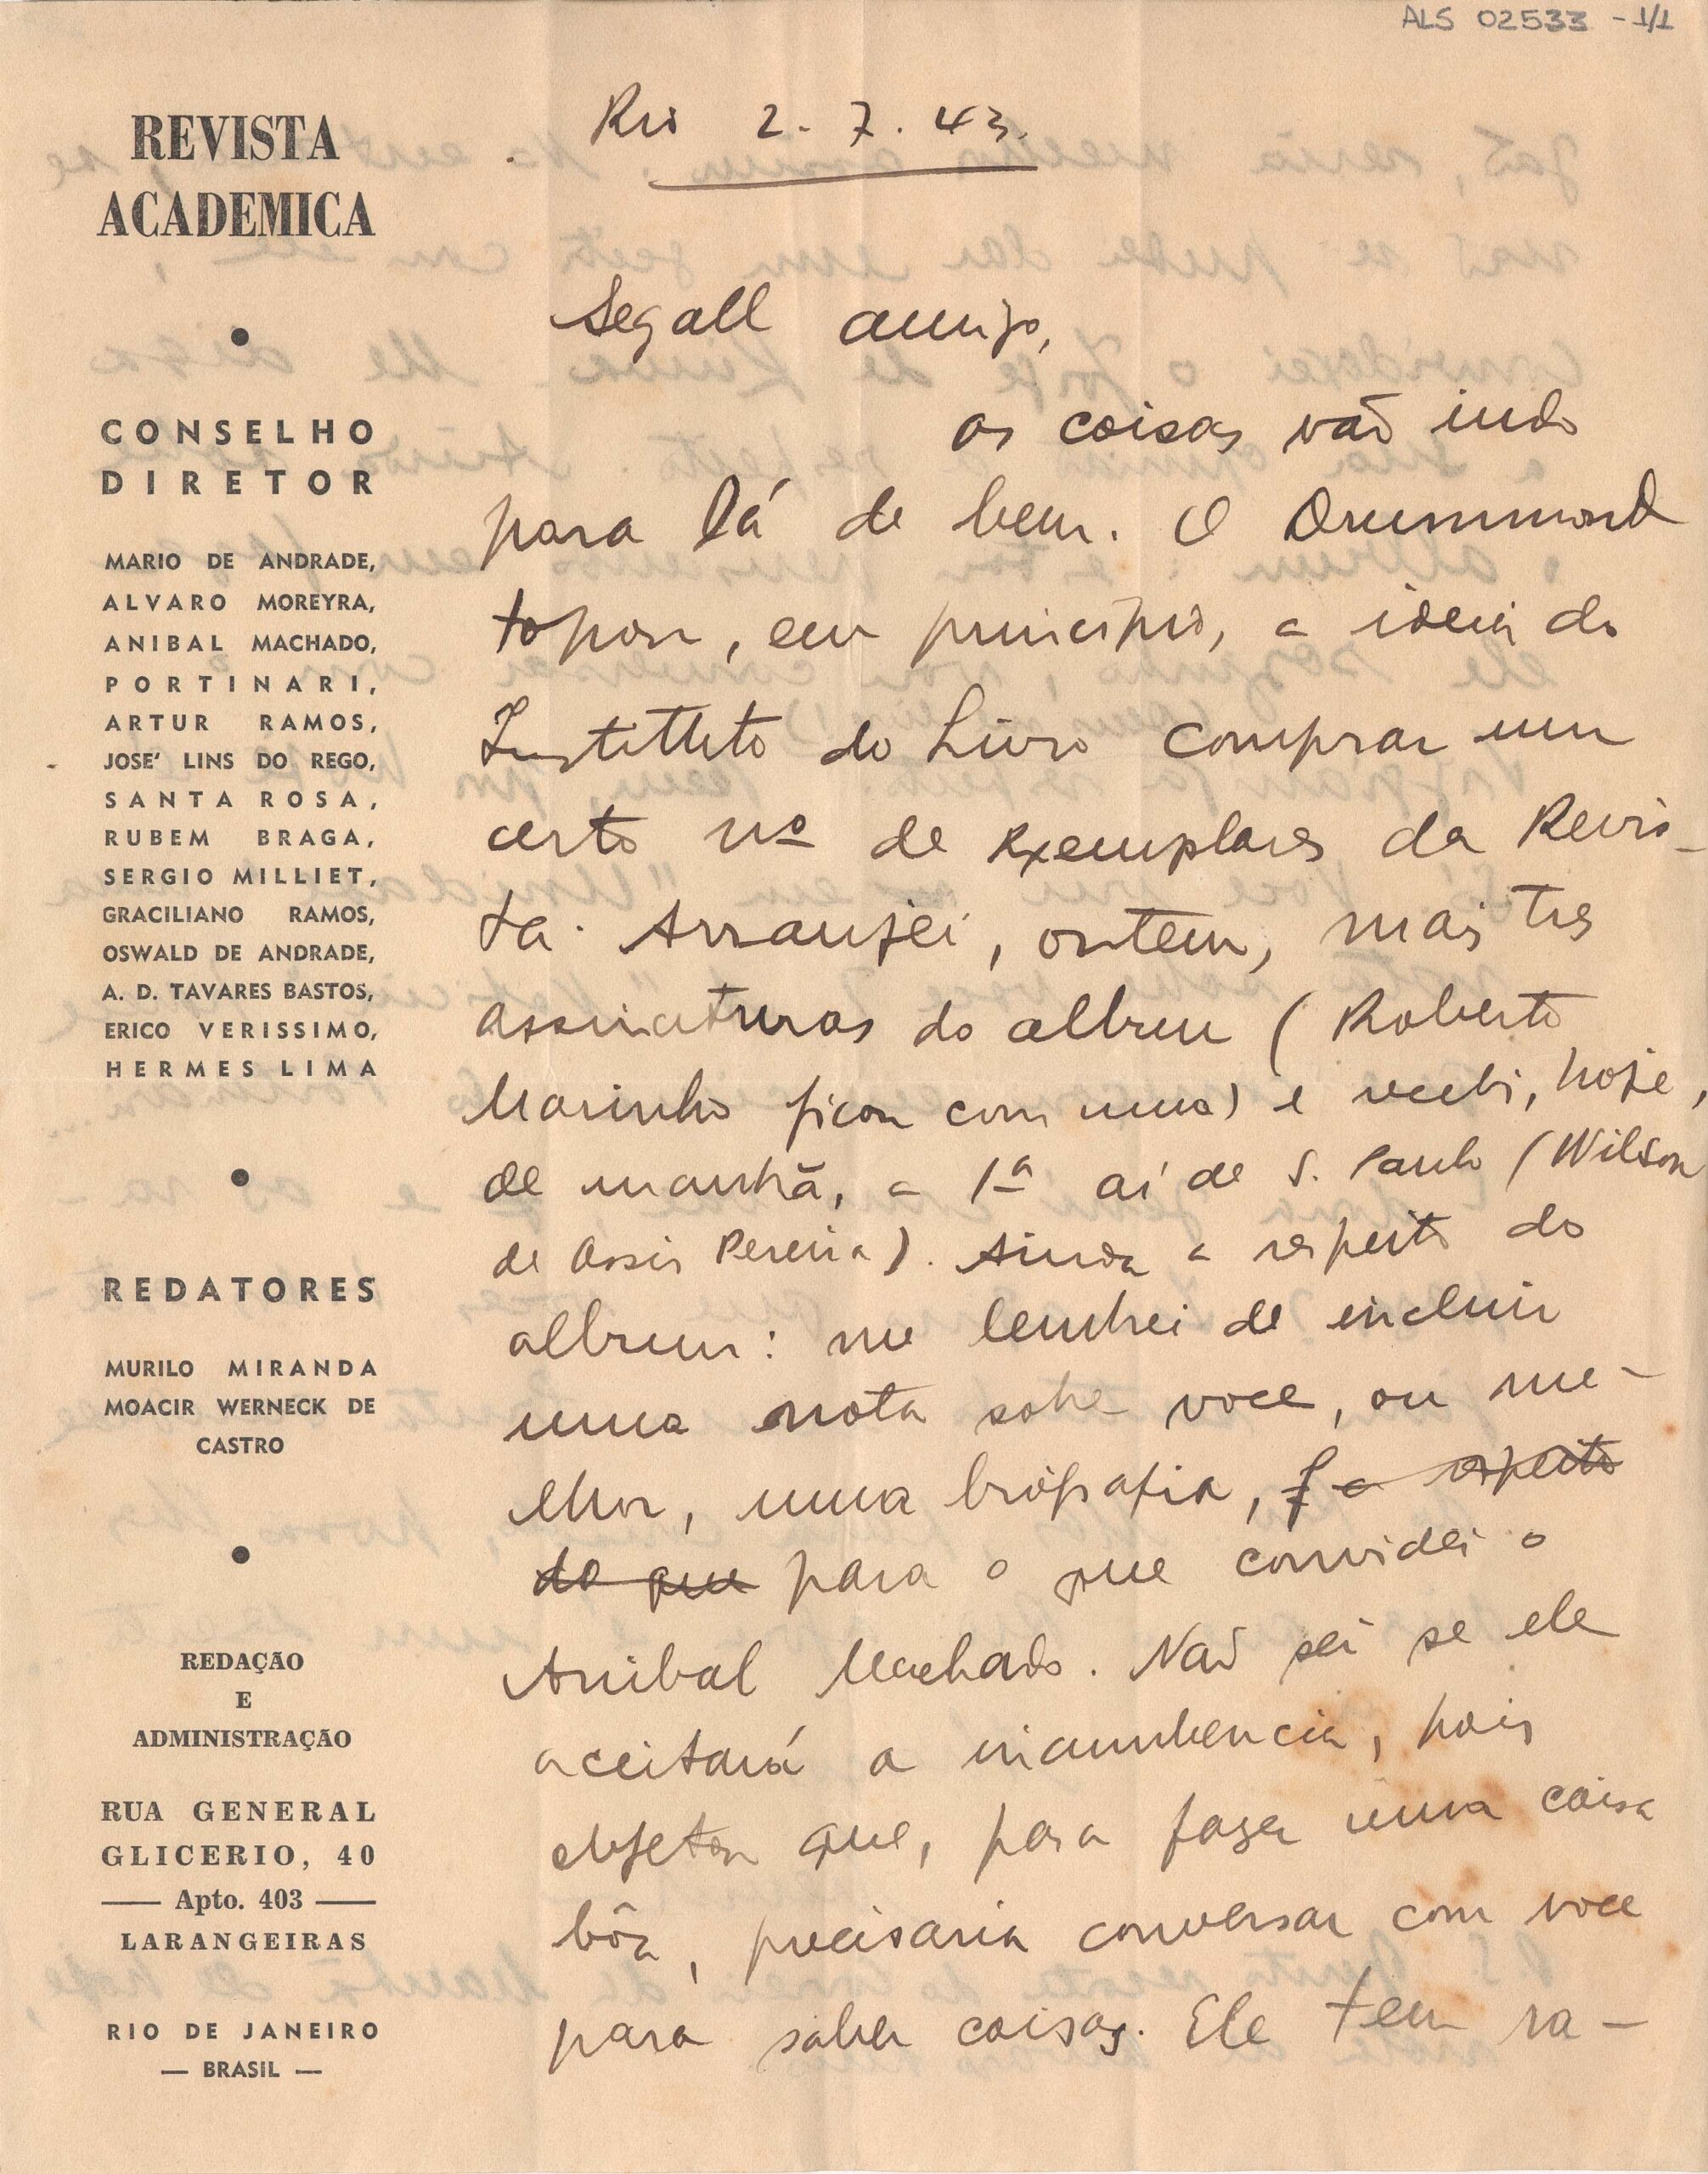 ALS 02533 - 1/1
REVISTA
ACADEMICA
CONSELHO
DIRETOR
MARIO DE ANDRADE,
ALVARO MOREYRA,
ANIBAL MACHADO,
PORTINARI,
ARTUR RAMOS,
JOSE' LINS DO REGO,
SANTA ROSA,
RUBEM BRAGA,
SERGIO MILLIET,
GRACILIANO RAMOS,
OSWALD DE ANDRADE,
A. D. TAVARES BASTOS,
ERICO VERISSIMO,
HERMES LIMA
REDATORES
MURILO MIRANDA
MOACIR WERNECK DE
CASTRO
REDAÇÃO
E
ADMINISTRAÇÃO
RUA GENERAL
GLICERIO, 40
— Apto. 403 —
LARANGEIRAS
RIO DE JANEIRO
— BRASIL —
Rio 2. 7. 43.
Segall amigo,
as coisas vão indo
para lá de bem. O Drummond
topou, em principio, a ideia do
Instituto do Livro comprar um
certo nº de exemplares da Revis-
ta. Arranjei, ontem, mais tres
assinaturas do album (Roberto
Marinho ficou com uma) e recebi, hoje,
de manhã, a 1ª aí de S. Paulo (Wilson
de Assis Pereira). Ainda a respeito do
album: me lembrei de incluir
uma nota sobre voce, ou me-
lhor, uma biografia, a respeito
do que para o que convidei o
Anibal Machado. Não sei se ele
aceitará a incumbencia, pois
objetou que, para fazer uma coisa
bôa, precisaria conversar com voce
para saber coisas. Ele tem ra-